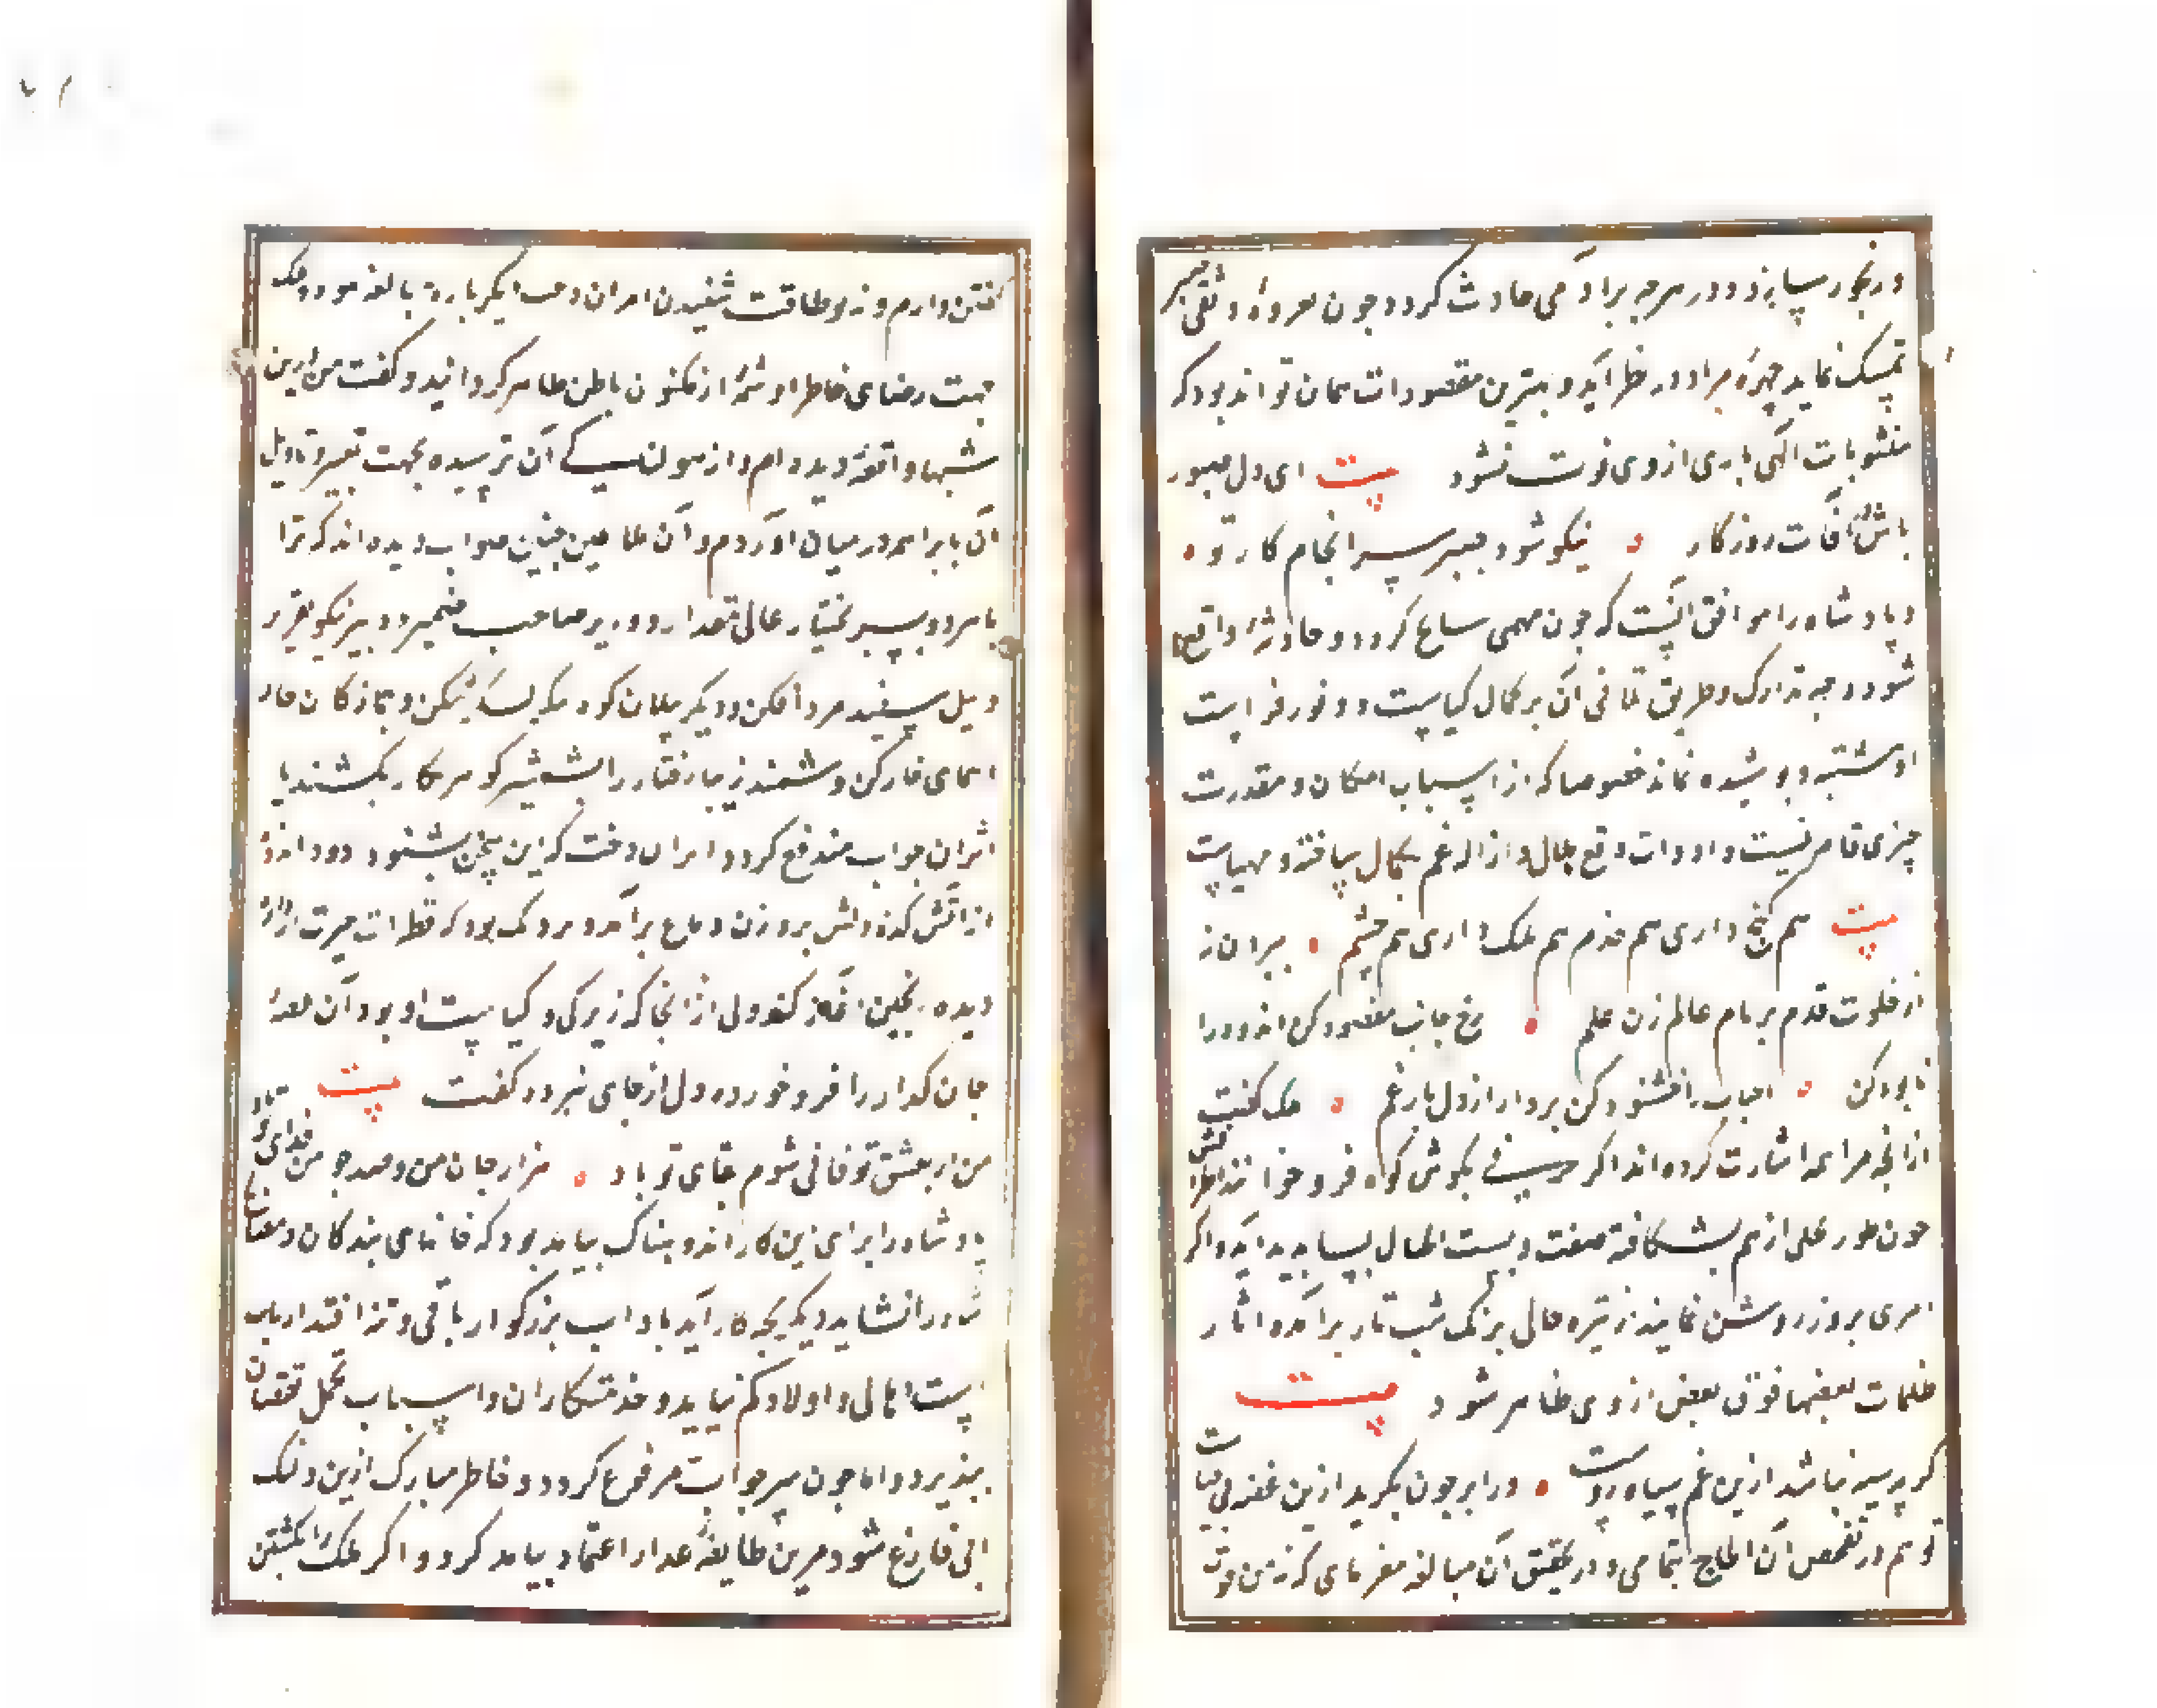 و رنجور میسازند و در هرچه برآدمی حادث گردد چون بعروهٔ وثقی صبر
تمسک نماید چهرهٔ مراد در نظر آید و بهترین مقصودات همان تواند بود که
مثوبات الهی باری از وی فوت نشود بیت ای دل صبور
باش بر آفات روزگار نیکو شود بصبر سرانجام کار تو
و پادشاه را موافق آنست که چون مهمی سانح گردد و حادثهٔ واقع
شود وجه تدارک و طریق تلافی آن بر کمال کیاست و وفور فراست
او مشتبه و پوشیده نماند خصوصا که از اسباب امکان و مقدرت
چیزی قاصر نیست و ادوات دفع ملال و ازاله غم بکمال ساخته و مهیاست
بیت هم گنج داری هم خدم هم ملک داری هم حشم بیران ز
از خلوت قدم بر بام عالم زن علم رخ جانب مقصود کن اندوه را
نابود کن احباب را خشنود کن بردار از دل بار غم ملک گفت
از آنچه براهمه اشارت کرده‌اند اگر حرفی بگوش کوه فرو خوانند اطرافش
چون طور علی از هم بشکافته صفت وبست الجبال بسا پدید آید و اگر
امری بروز روشن نمایند از تیره حالی برنگ شب تار برآمده آثار
ظلمات بعضها فوق بعض از وی ظاهر شود بیت
گر سیه نباشد ازین غم سیاه‌روست ور ابر چون بگرید ازین غصه بی‌حیاست
تو هم در تفحص آن الحاح بتمامی و در تحقیق آن مبالغه مفرمای که نه من قوت
گفتن دارم و نه تو طاقت شنیدن ایران دخت دیگر باره مبالغه نمود و ملک
جهت رضای خاطر او شمهٔ از مکنون باطن ظاهر گردانید و گفت من درین
شبها واقعهٔ دیده‌ام و از هول آن ترسیده بجهت تعبیر و تاویل
آن با براهمه در میان آوردم و آن ملاعین چنین صواب دیده‌اند که ترا
با هر دو پسر بختیار عالی مقدار و وزیر صاحب ضمیر و دبیر نیکو تقریر
و پیل سفید مردافکن و دیگر پیلان کوه پیکر لشکرشکن و جمازگان
صحرای خارکن و سمند زیبا رفتار را بشمشیر گوهرکار بکشند تا
اثر آن خواب مندفع گردد ایران دخت که این سخن بشنود دود اندوه
از آتشکده دلش بروزن دماغ برآمد و نزدیک بود که قطرات حیرت از
دیده ریختن آغاز کند ولی از آنجا که زیرکی و کیاست او بود آن لقمهٔ
جان‌گداز را فرو خورده دل از جای نبرد و گفت بیت
من ار بعشق تو فانی شوم بقای تو باد هزار جان من و صد چو من فدای تو باد
پادشاه را برای این کار اندوهناک نباید بود که جانهای بندگان
شاه را نشاید دیگر بچه کار آید تا ذات بزرگوار باقی و تر اقتدار
است اهالی و اولاد کم نیاید و خدمتکاران و اسباب تجمل نقصان
نپذیرد و اما چون شر خواب مرفوع گردد و خاطر مبارک ازین دلتنگ
انی فارغ شود برین طایفهٔ غدار اعتماد نباید کرد و اگر ملک را بکشتن